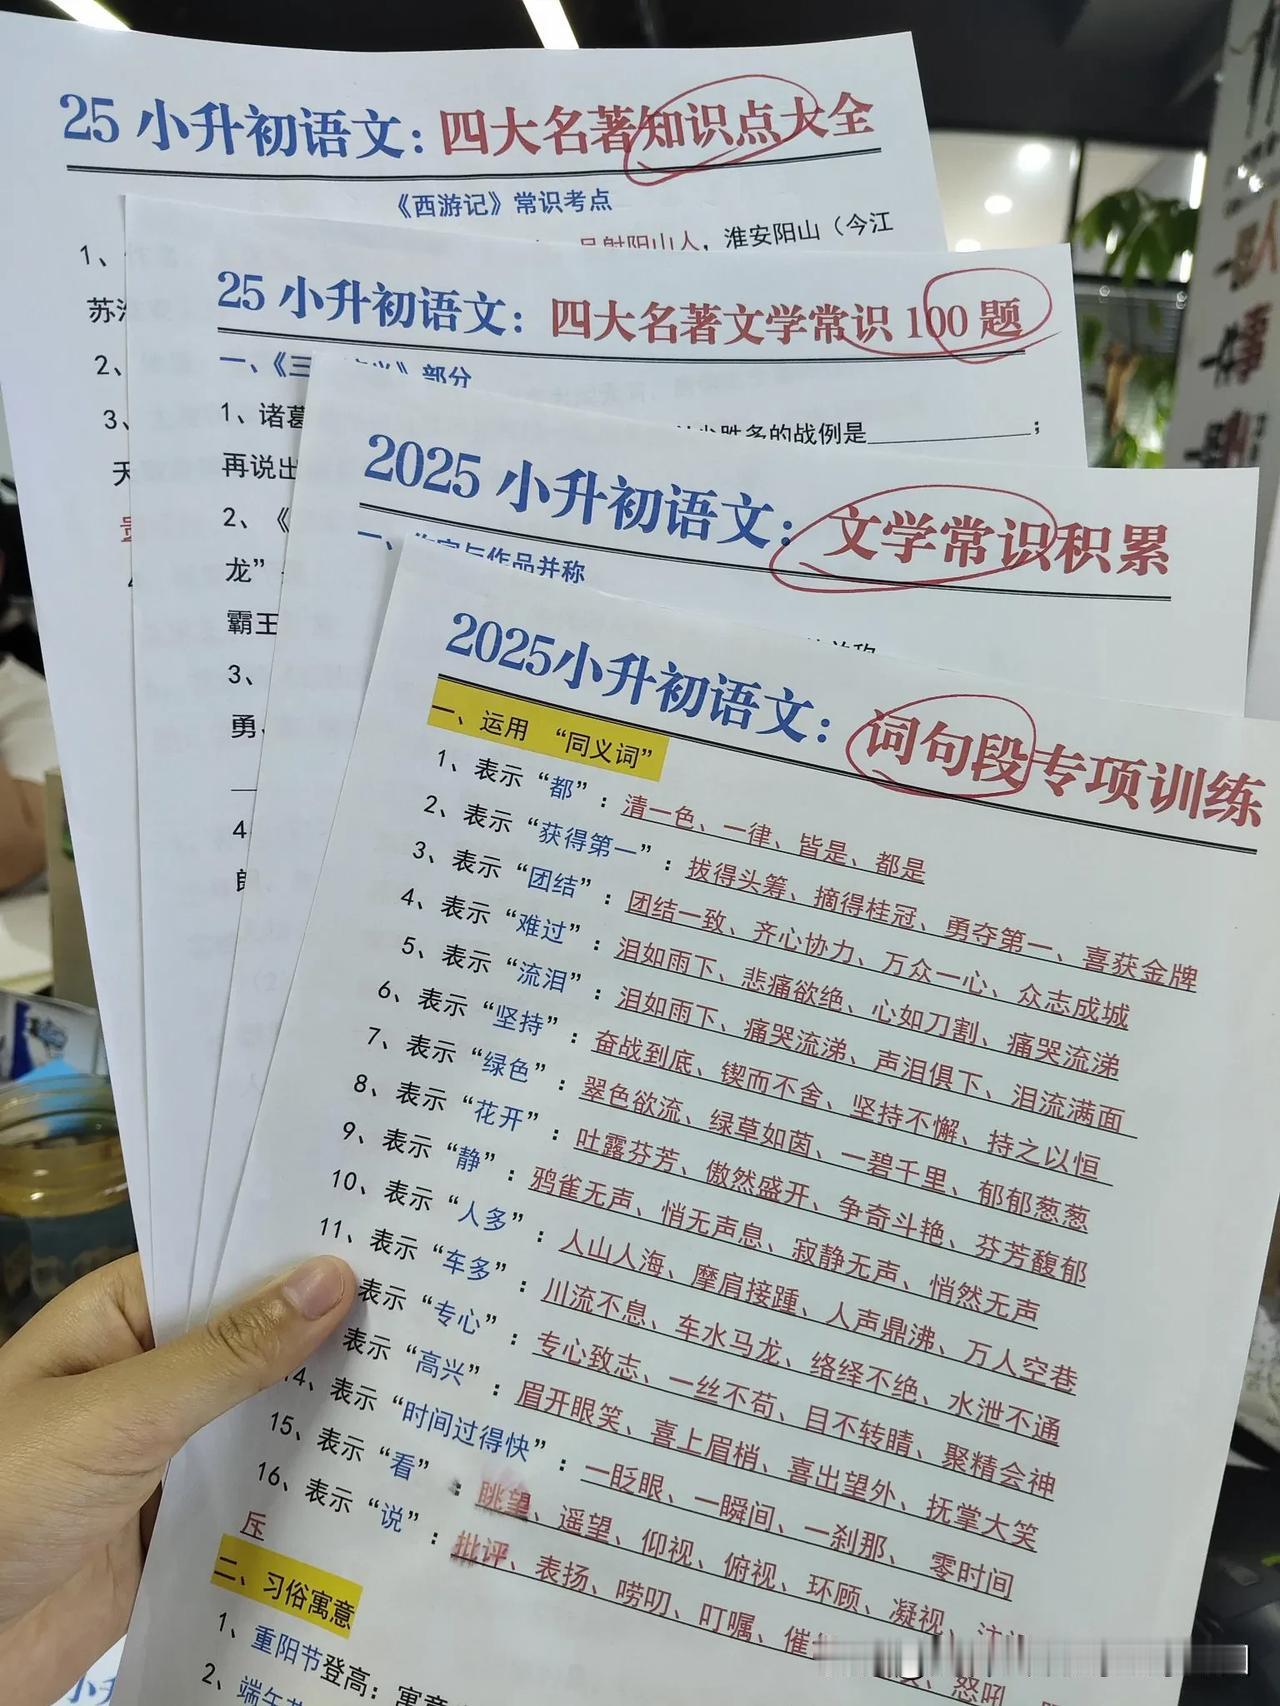 25 小升初语文：四大名著知识点大全
《西游记》常识考点
1、
射阳山人，淮安阳山（今江
苏淮
2、
3、
天
25 小升初语文：四大名著文学常识 100 题
一、《三国演义》部分
1、诸葛
胜多的战例是；
再说出
2、《
龙”
霸王
3、
勇、
4
2025 小升初语文：文学常识积累
一、作家与作品并称
2025小升初语文：词句段专项训练
一、运用 “同义词”
1、表示“都”：清一色、一律、皆是、都是
2、表示“获得第一”：拔得头筹、摘得桂冠、勇夺第一、喜获金牌
3、表示“团结”：团结一致、齐心协力、万众一心、众志成城
4、表示“难过”：泪如雨下、悲痛欲绝、心如刀割、痛哭流涕
5、表示“流泪”：泪如雨下、痛哭流涕、声泪俱下、泪流满面
6、表示“坚持”：奋战到底、锲而不舍、坚持不懈、持之以恒
7、表示“绿色”：翠色欲流、绿草如茵、一碧千里、郁郁葱葱
8、表示“花开”：吐露芬芳、傲然盛开、争奇斗艳、芬芳馥郁
9、表示“静”：鸦雀无声、悄无声息、寂静无声、悄然无声
10、表示“人多”：人山人海、摩肩接踵、人声鼎沸、万人空巷
11、表示“车多”：川流不息、车水马龙、络绎不绝、水泄不通
表示“专心”：专心致志、一丝不苟、目不转睛、聚精会神
表示“高兴”：眉开眼笑、喜上眉梢、喜出望外、抚掌大笑
14、表示“时间过得快”：一眨眼、一瞬间、一刹那、 零时间
15、表示“看”：眺望、遥望、仰视、俯视、环顾、凝视、注
16、表示“说”：批评、表扬、唠叨、叮嘱、催 怒吼
斥
二、习俗寓意
1、重阳节登高：寓意
2、端午节